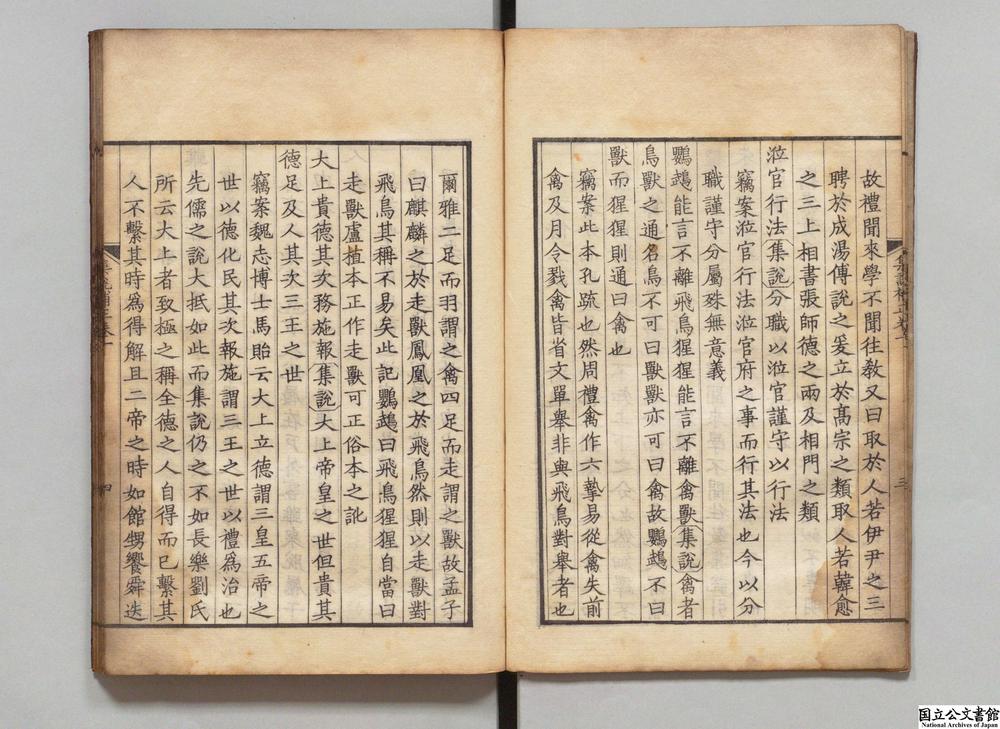 故禮聞來學不聞往教又曰取於人若伊尹之三
聘於成湯傅說之爰立於髙宗之類取人若韓愈
之三上相書張師德之兩及相門之類
涖官行法集說分職以涖官謹守以行法
竊案涖官行法涖官府之事而行其法也今以分
職謹守分屬殊無意義
鸚鵡能言不離飛鳥猩猩能言不離禽獸集說禽者
鳥獸之通名鳥不可曰獸獸亦可曰禽故鸚鵡不曰
獸而猩猩則通曰禽也
竊案此本孔疏也然周禮禽作六摯易從禽失前
禽及月令戮禽皆省文單舉非與飛鳥對舉者也
集說補正卷一
三
爾雅二足而羽謂之禽四足而走謂之獸故孟子
曰麒麟之於走獸鳳凰之於飛鳥然則以走獸對
飛鳥其稱不易矣此記鸚鵡曰飛鳥猩猩自當曰
走獸盧植本正作走獸可正俗本之訛
大上貴德其次務施報集說大上帝皇之世但貴其
德足及人其次三王之世
竊案魏志博士馬貽云大上立德謂三皇五帝之
世以德化民其次報施謂三王之世以禮爲治也
先儒之說大抵如此而集說仍之不如長樂劉氏
所云大上者致極之稱全德之人自得而已繫其
人不繫其時爲得解且二帝之時如館甥饗舜迭
集說補正卷一
四
国立公文書館
National Archives of Japan